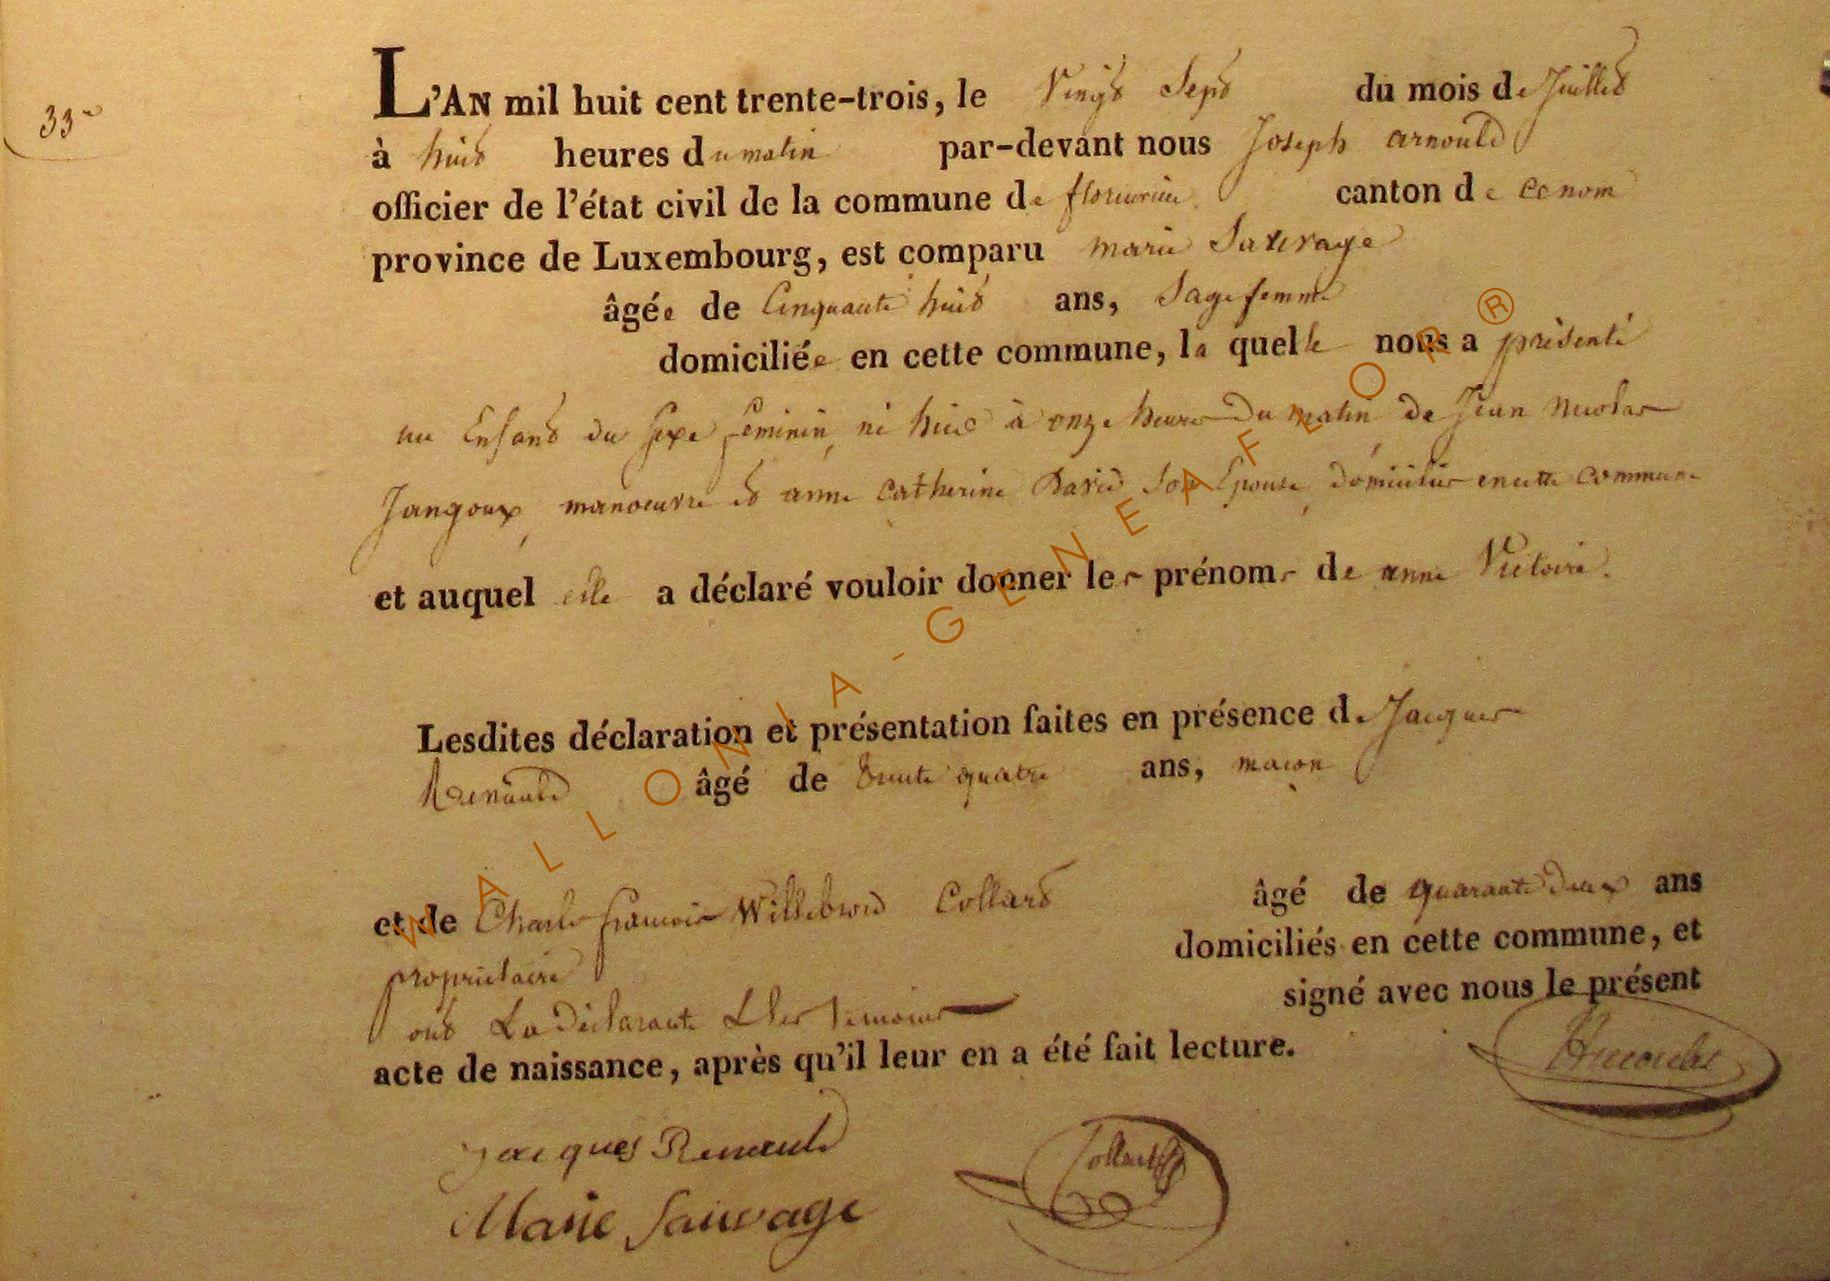 33e
L'AN mil huit cent trente-trois, le Vingt Sept du mois de Juillet
à huit heures du matin par-devant nous Joseph arnould
officier de l'état civil de la commune de florenville canton de ce nom
province de Luxembourg, est comparu marie Sauvage
âgée de Cinquante huit ans, Sagefemme
domiciliée en cette commune, la quelle nous a présenté
un Enfant du Sexe féminin, né hier à onze heures du matin de Jean Nicolas
Jangoux, manoeuvre et anne catherine David Son Epouse, domiciliés en cette commune
et auquel elle a déclaré vouloir donner les prénoms de anne Victoire.
Lesdites déclaration et présentation faites en présence de Jacques
Renauld âgé de trente quatre ans, maçon
et de Charles françois Willebrord Collard âgé de quarante deux ans
propriétaire domiciliés en cette commune, et
ont La déclarante & les témoins signé avec nous le présent
acte de naissance, après qu'il leur en a été fait lecture.
Jacques Renauld
Collard
Marie Sauvage
WALLONIA-GENEAFLOR®